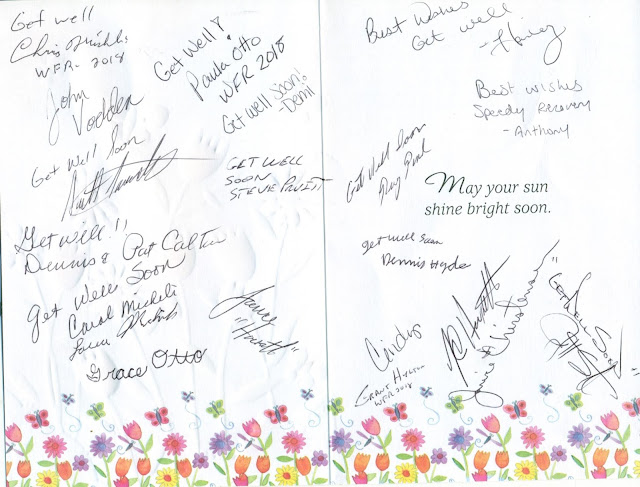 Get well
Chris Micheli
WFR-2018
John
Vodden
Get Well Soon
Get Well!
Paula Otto
WFR 2018
Get well Soon!
-Demil
GET WELL
SOON
STEVE PRUETT
Get well!!
Dennis & Pat Calton
Get Well Soon
Carol Micheli
Laura Micheli
Grace Otto
James
"Howatt"
Best Wishes
Get well
Best wishes
Speedy Recovery
- Anthony
Get Well Soon
May your sun
shine bright soon.
get well soon
Dennis Hyde
Cindy
GRANT
WFR 2018
Christensen
GET WELL SOON